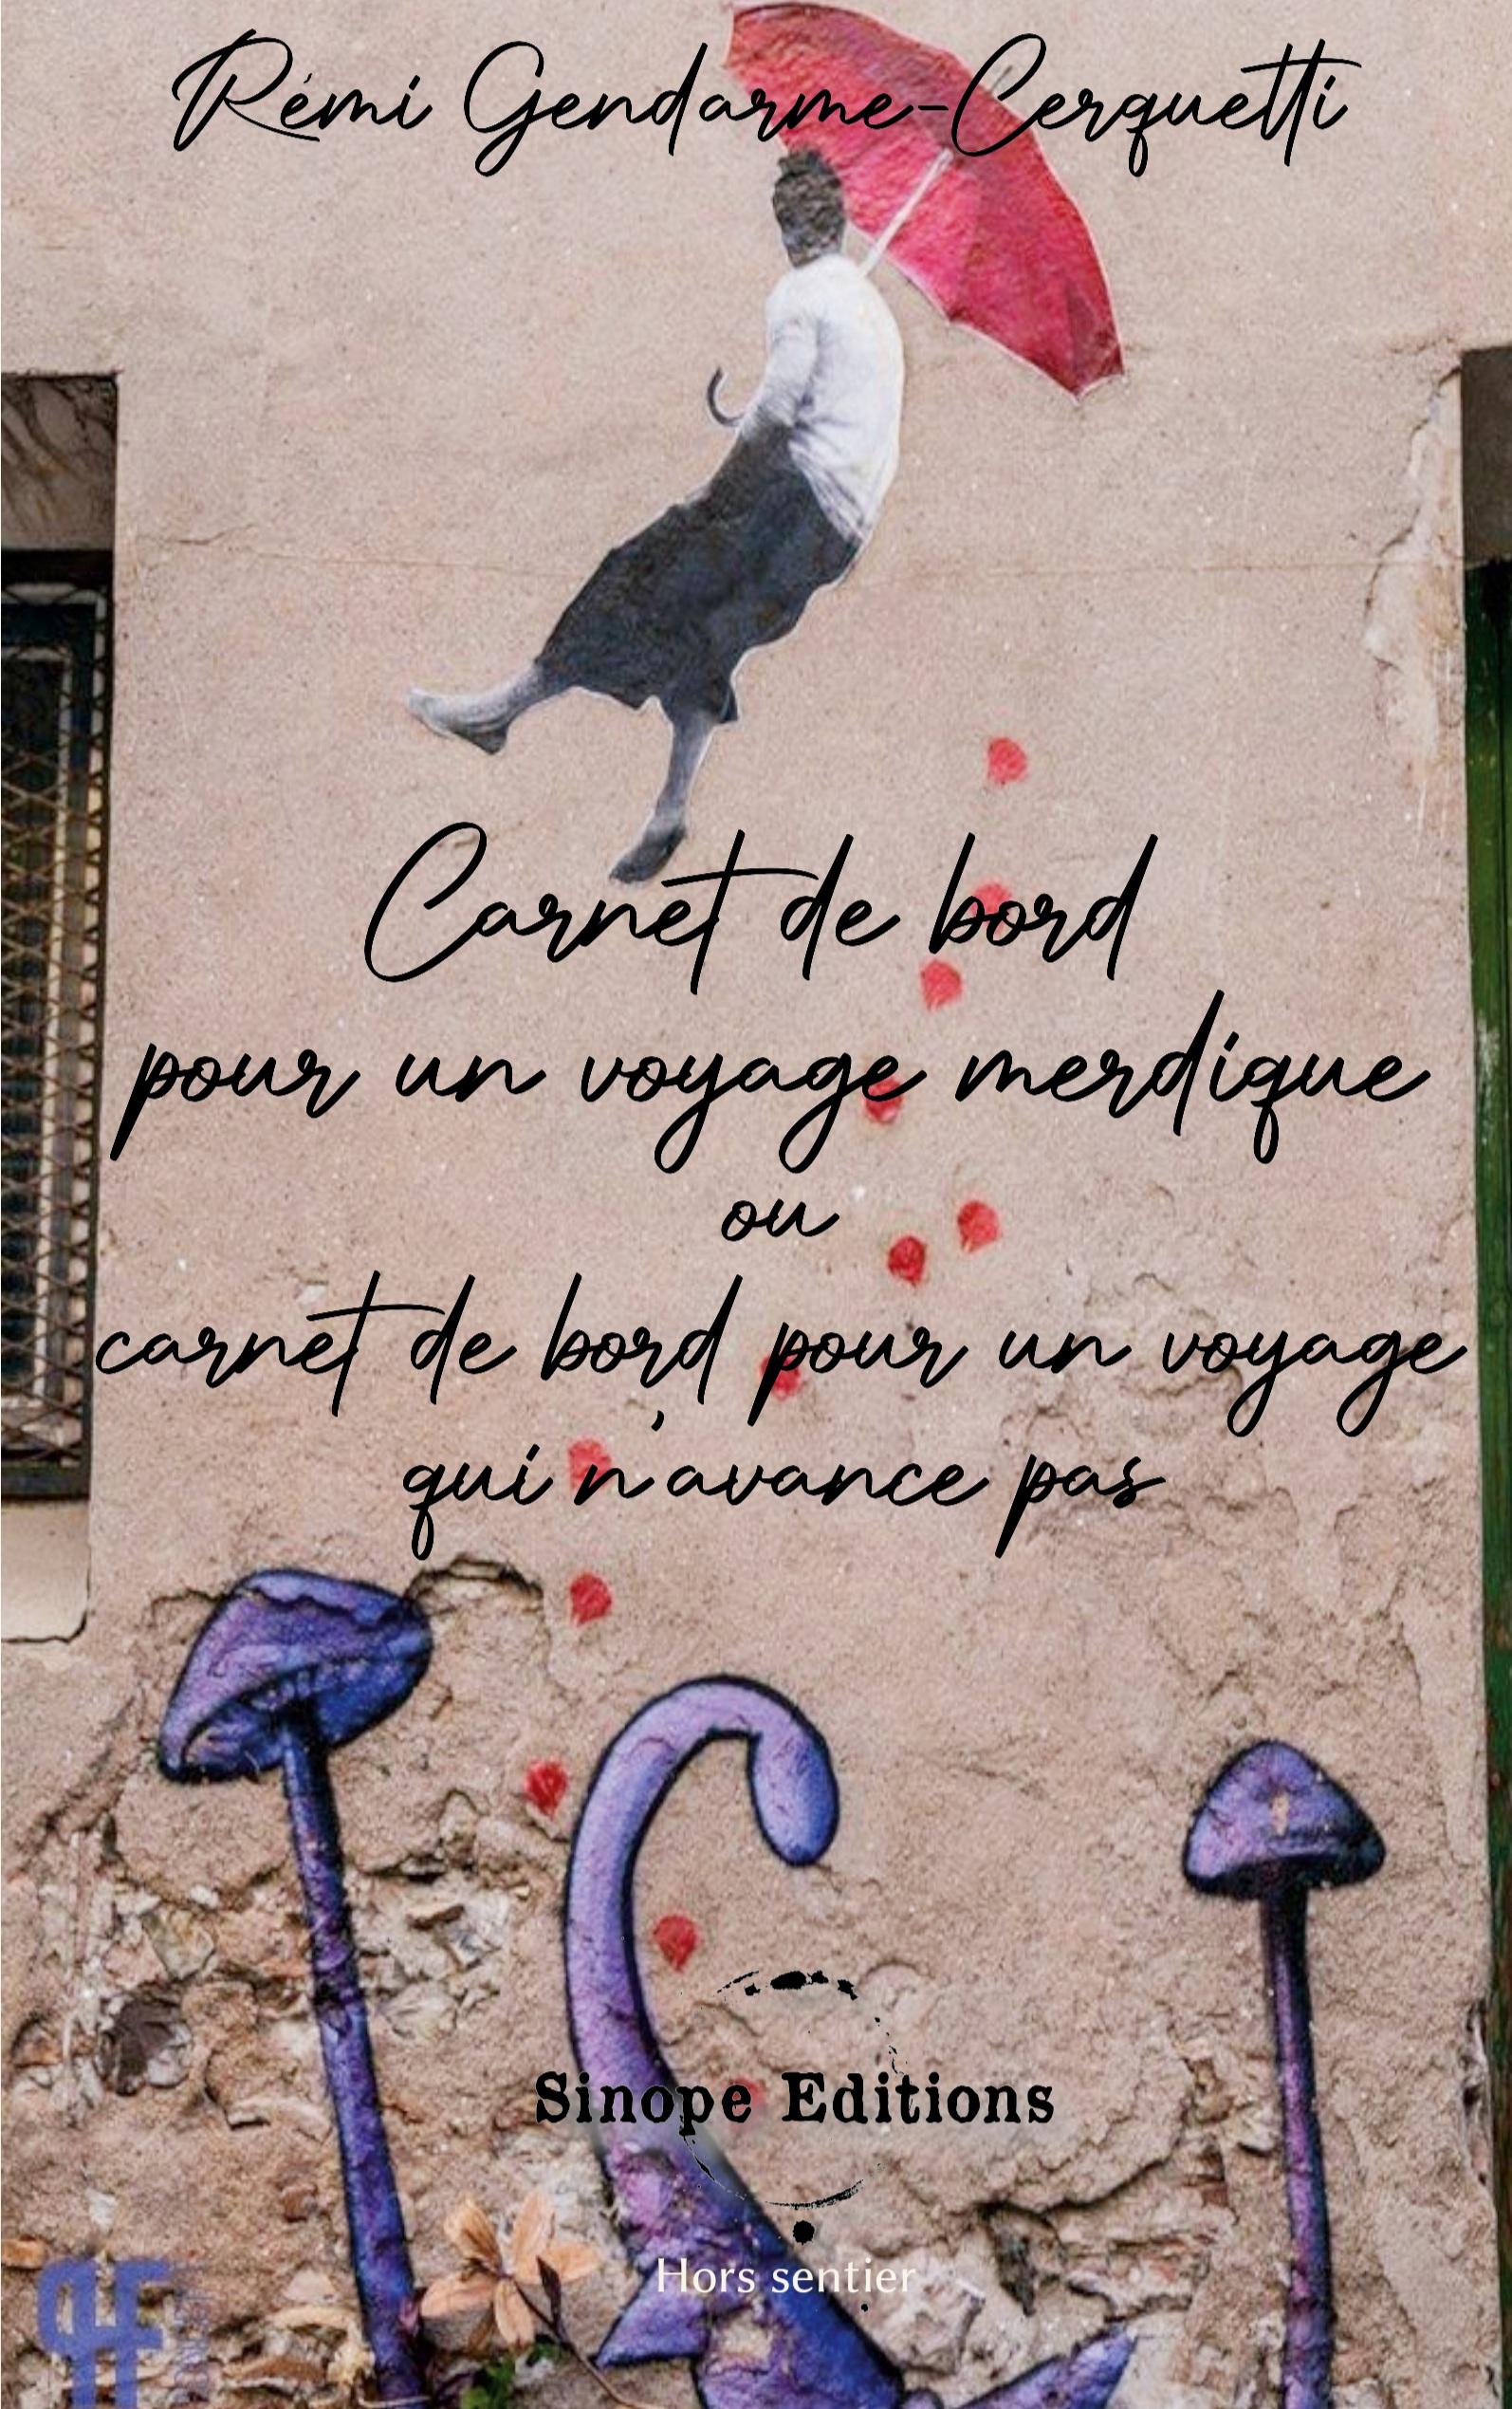 Rémi Gendarme-Cerquetti
Carnet de bord
pour un voyage merdique
ou
carnet de bord pour un voyage
qui n'avance pas
Sinope Editions
Hors sentier